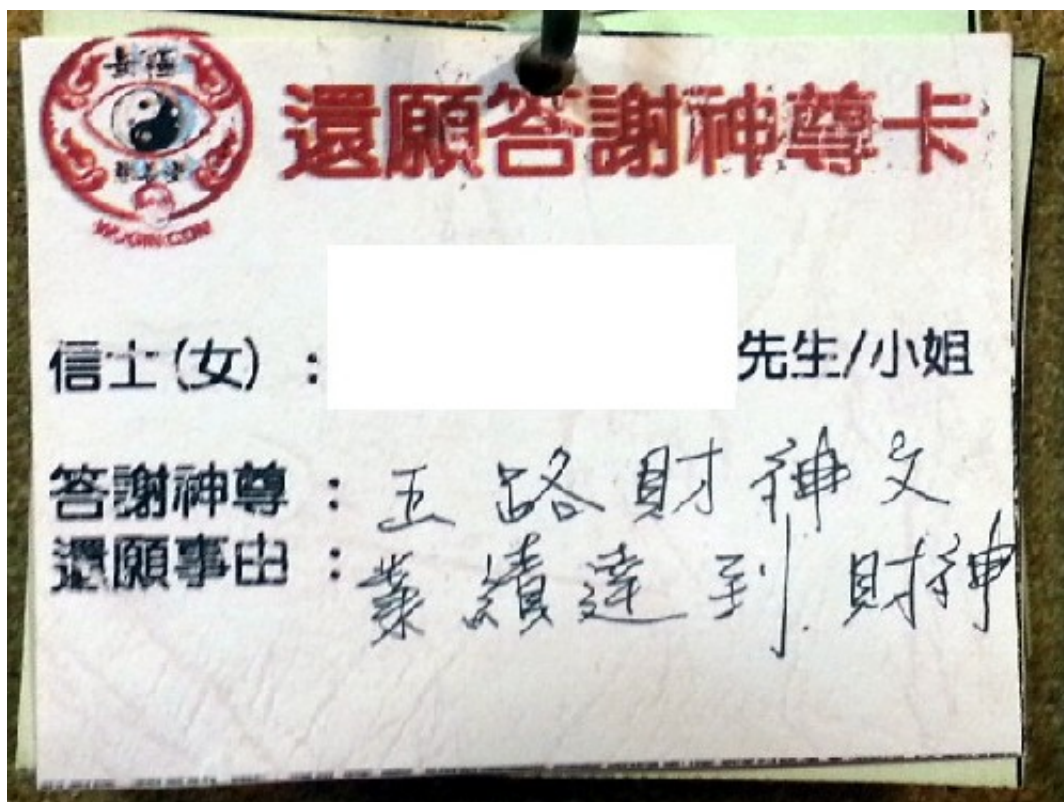 還願答謝神尊卡
信士(女)： 先生/小姐
答謝神尊：五路財神文
還願事由：業績達到財神